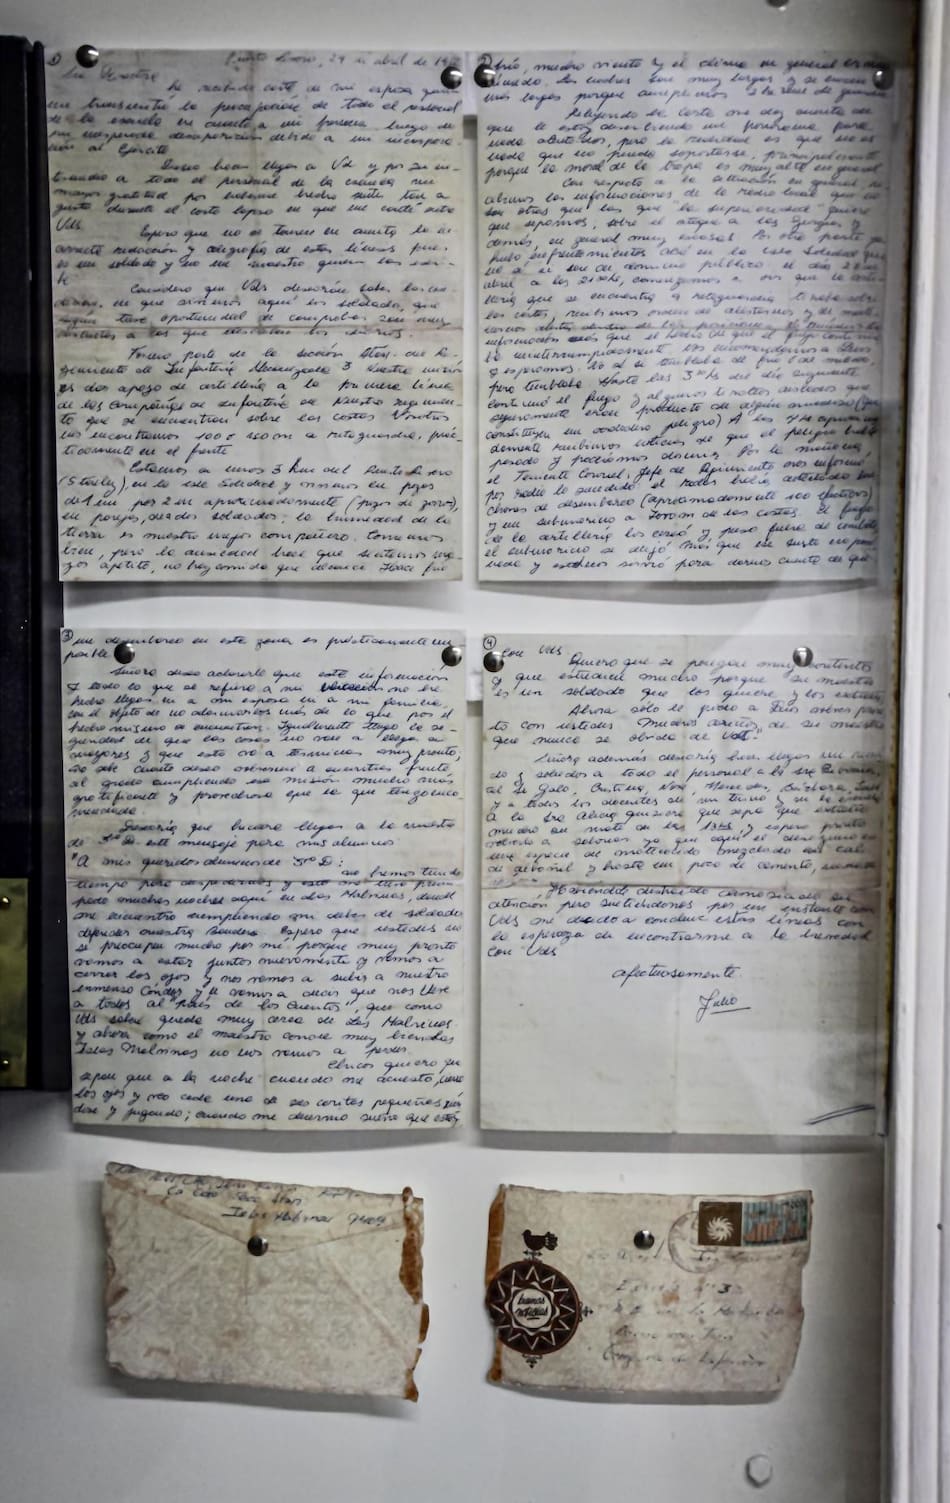 ① Puerto 29 de abril de 19
He recibido carta de mi esposa
la preocupación de todo el personal
de la escuela en cuanto a mi persona luego de
mi inesperada desaparición debido a mi incorpora-
ción al Ejército
Deseo hacer llegar a Ud y por su in-
a todo el personal de la escuela mi
mayor gratitud por haberme hecho sentir tan a
gusto durante el corto lapso en que me conté entre
Uds.
Espero que no se tomen en cuenta la in-
correcta redacción y caligrafía de estas líneas pues
es un soldado y no un maestro quien las escri-
be
Considero que Uds desearán saber las
en que vivimos aquí los soldados, que
según tuve oportunidad de comprobar son muy
distintas a las que describen los diarios
Formo parte de la sección del Re-
gimiento de Infantería Mecanizada 3 Nuestra misión
es dar apoyo de artillería a la primera línea
de las Compañías de Infantería de Nuestro regimien-
to que se encuentran sobre las costas Nosotros
nos encontramos 100 ó 150 m a retaguardia, prác-
ticamente en el frente
Estamos a unos 3 Km del Puerto
(Stanley), en la isla Soledad y vivimos en pozos
de 1 m por 2 m aproximadamente (pozos de zorro),
en parejas, de a dos soldados; la humedad de la
tierra es nuestra mejor compañera. Comemos
bien, pero la ansiedad hace que sintamos ma-
yor apetito, no hay comida que alcance Hace frío
frío, mucho viento y el clima en general es muy
Las noches son muy largas y se hacen
más largas porque cumplimos 2 hs de guardia
Releyendo la carta me doy cuenta de
que le estoy describiendo un panorama para
nada alentador, pero la realidad es que no es
nada que no pueda soportarse, principalmente
porque la moral de la tropa es muy alta en general
Con respecto a la situación en general re-
cibimos las informaciones de la radio local que no
son otras que las que "la superioridad" quiere
que sepamos, sobre el ataque a las Georgias y
demás, en general muy escasas. Por otra parte ya
hubo enfrentamientos acá en la isla Soledad que
no sé si son de dominio público el día 28 de
abril a las 21 hs, comenzamos a oír que la arti-
llería que se encuentra a retaguardia tiraba sobre
las costas, recibimos orden de alistarnos y de mante-
nernos
ininterrumpidamente. Nos encomendamos a Dios
y esperamos. No sé si temblaba de frío o de miedo,
pero temblaba. Hasta las 3 hs del día siguiente
continuó el fuego y algunos tiros aislados que
seguramente eran producto de algún nervioso (que
constituyen un verdadero peligro) A las 4 hs aproxima-
damente recibimos noticias de que el peligro había
pasado y podíamos dormir. Por la mañana
el Teniente Coronel, Jefe de Regimiento nos informó
por radio lo sucedido: el radar había detectado
de desembarco (aproximadamente 100 efectivos)
y un submarino a de las costas. El fuego
de la artillería los cercó y puso fuera de combate
el submarino se alejó. Más que un susto no pasó
nada y además sirvió para darnos cuenta de que
③ un desembarco en esta zona es prácticamente im-
posible
Señora deseo aclararle que esta información
y todo lo que se refiera a mi situación no he
hecho llegar ni a mi esposa ni a mi familia,
con el objeto de no alarmarlos más de lo que por el
hecho mismo se encuentran. Igualmente tengo la se-
guridad de que las cosas no van a llegar a
mayores y que esto va a terminar muy pronto,
no sabe cuánto deseo volver a encontrarme frente
al grado cumpliendo esa misión mucho más
gratificante y provechosa que la que tengo enco-
mendada.
Desearía que hiciera llegar a la maestra
de 3ro D. este mensaje para mis alumnos
"A mis queridos alumnos de 3ro D:
no hemos tenido
tiempo para despedirnos y esto me tuvo preocu-
pado muchas noches aquí en las Malvinas, donde
me encuentro cumpliendo mi deber de soldado:
defender nuestra bandera. Espero que ustedes no
se preocupen mucho por mí porque muy pronto
vamos a estar juntos nuevamente y vamos a
cerrar los ojos y nos vamos a subir a nuestro
inmenso Cóndor y le vamos a decir que nos lleve
a todos al "País de los Cuentos", que como
Uds saben queda muy cerca de Las Malvinas.
y ahora como el maestro conoce muy bien las
Islas Malvinas no nos vamos a perder.
Chicos quiero que
sepan que a la noche cuando me acuesto, cierro
los ojos y veo cada una de sus caritas pequeñas rien-
do y jugando; cuando me duermo sueño que estoy
④ con Uds
Quiero que se pongan muy contentos
y que estudien mucho porque su maestro
es un soldado que los quiere y los extraña
Ahora sólo le pido a Dios volver pron-
to con ustedes Muchos cariños de su maestro
que nunca se olvida de Uds."
Señora además desearía hacer llegar mi
y saludos a todo el personal a la Sra
al Sr Galo, Cristina, Nora, Mercedes, Bárbara,
y a todos los docentes de mi turno y su
A la Sra Alicia quisiera que sepa que extraño
mucho su mate de las y espero pronto
volverlo a saborear ya que aquí el desayuno es
una especie de mate cocido mezclado con cal
de albañil y hasta un poco de cemento,
Habiendo distraído demasiado su
atención pero sintiéndome por un instante con
Uds me decido a concluir estas líneas con
la esperanza de encontrarme a la brevedad
con Uds
afectuosamente.
Julio
Islas Malvinas 9409
buenas
noticias
Escuela nº 3